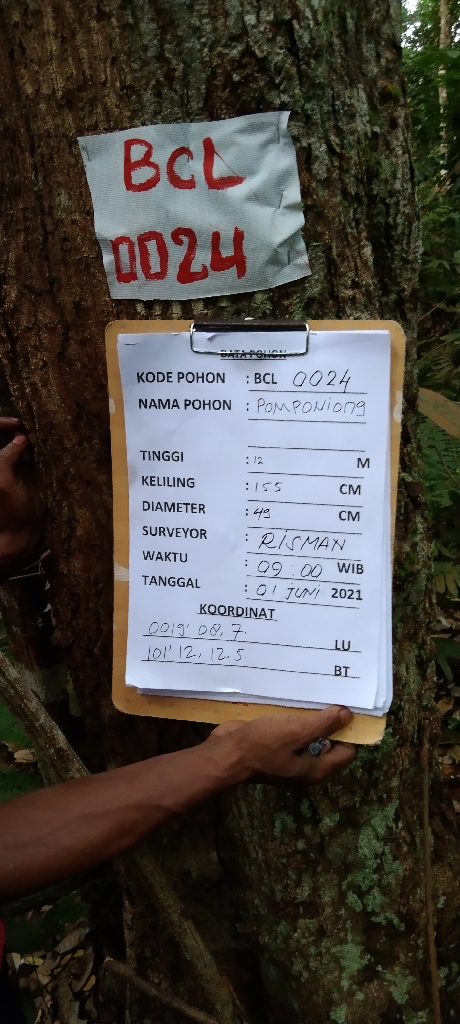 BCL
0024
DATA POHON
KODE POHON : BCL 0024
NAMA POHON : POMPONIONG
TINGGI : 12 M
KELILING : 155 CM
DIAMETER : 49 CM
SURVEYOR : RISMAN
WAKTU : 09:00 WIB
TANGGAL : 01 JUNI 2021
KOORDINAT
0019' 08, 7. LU
101' 12, 12,5. BT